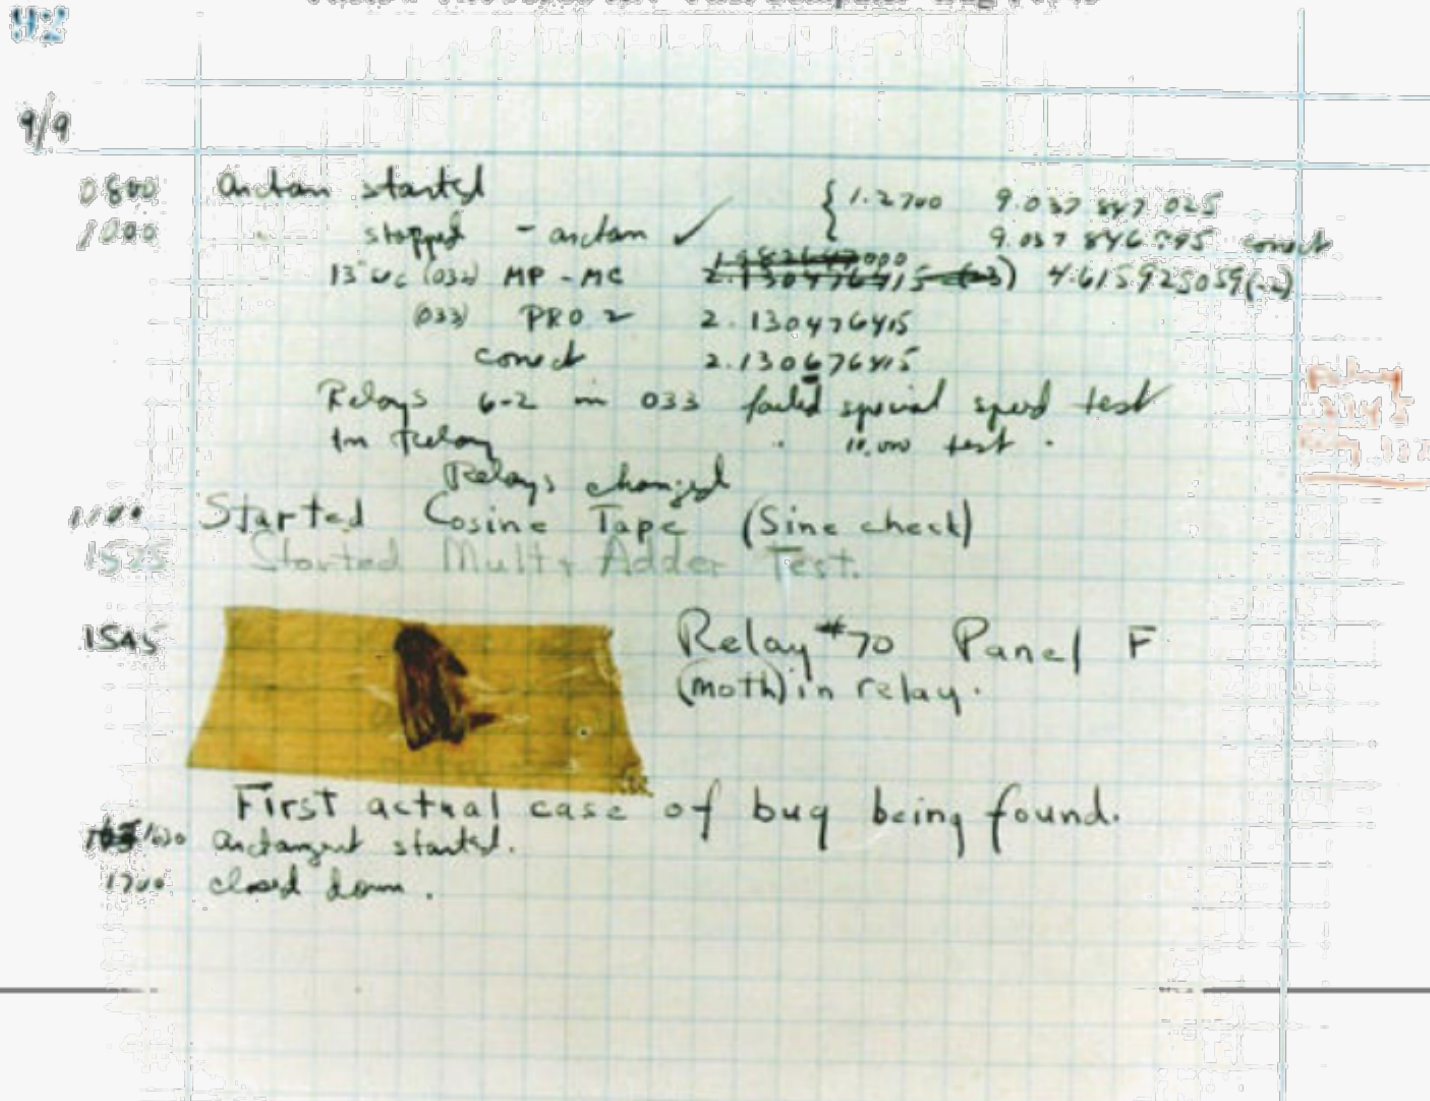 92
9/9
0800 Arctan started { 1.2700 9.037 847 025
1000 stopped - arctan ✓ 9.037 846 995 correct
13"uc (032) MP - MC 2.130476415 (-3) 4.615925059(-2)
(033) PRO 2 2.130476415
correct 2.130676415
Relays 6-2 in 033 failed special speed test
In Relay 10,000 test .
Relays changed
1100 Started Cosine Tape (Sine check)
1525 Started Mult + Adder Test.
1545 Relay #70 Panel F
(moth) in relay.
First actual case of bug being found.
1630 arctangent started.
1700 closed down.